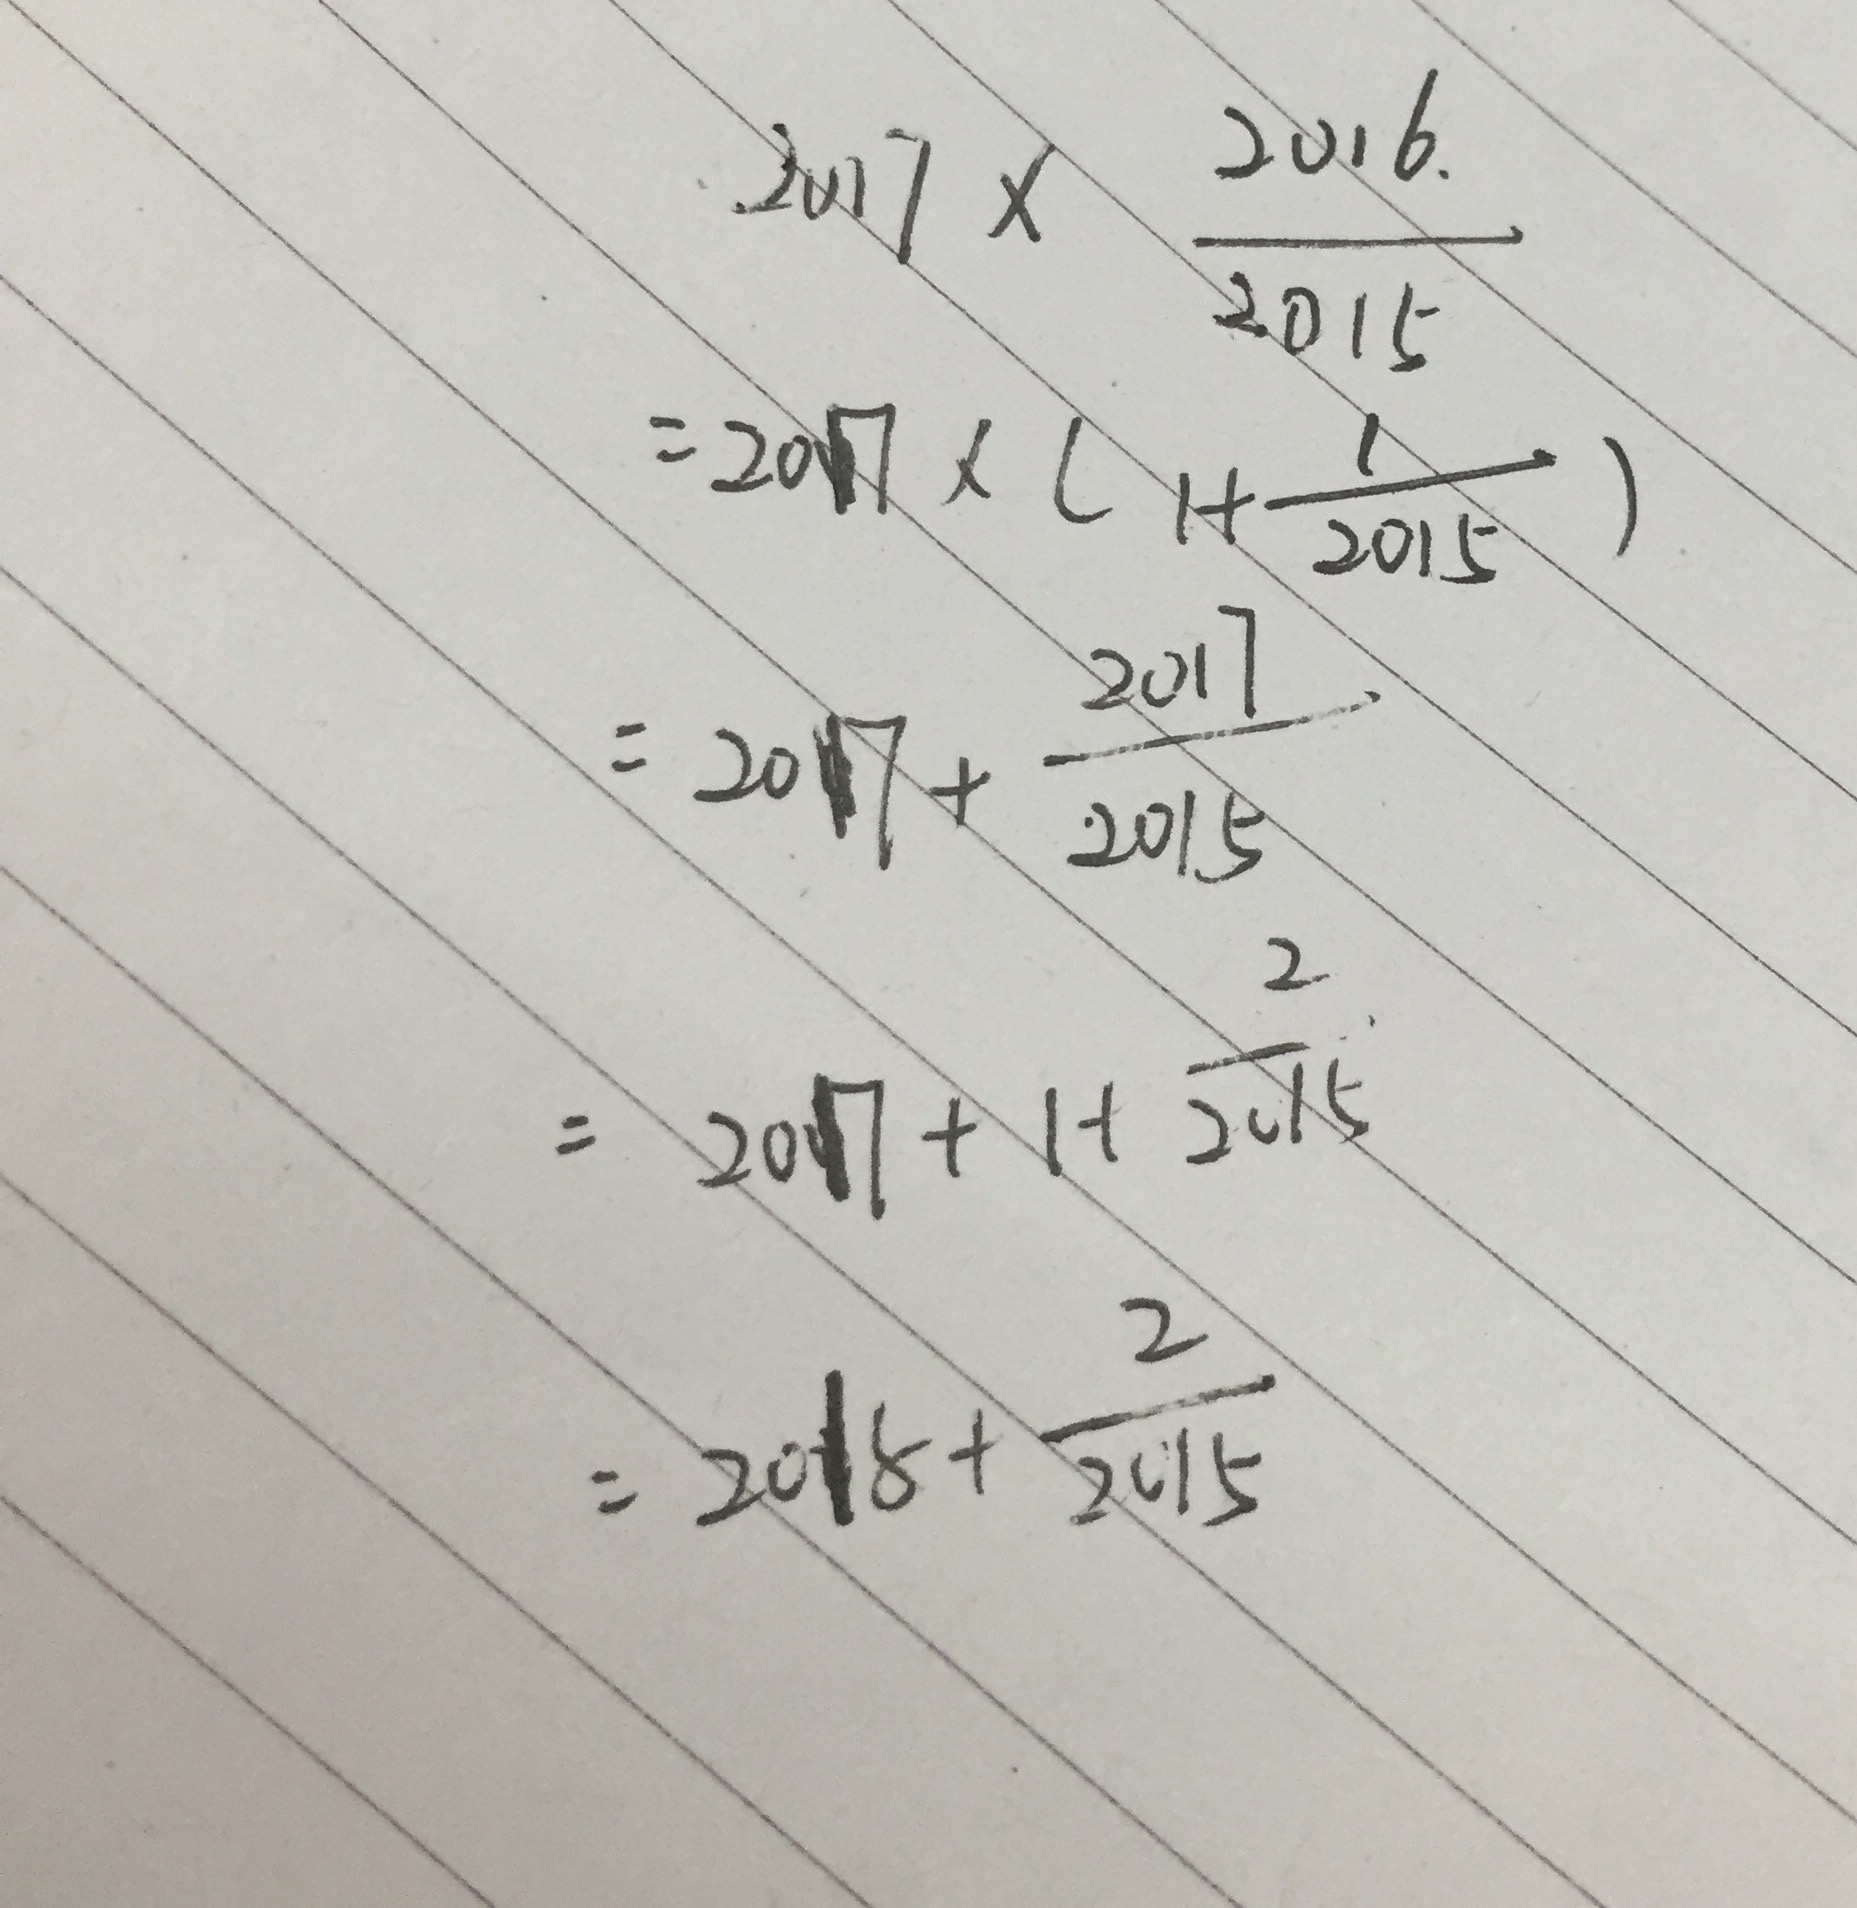 2017 × 2016/2015
= 2017 × (1+ 1/2015)
= 2017 + 2017/2015
= 2017 + 1+ 2/2015
= 2018 + 2/2015